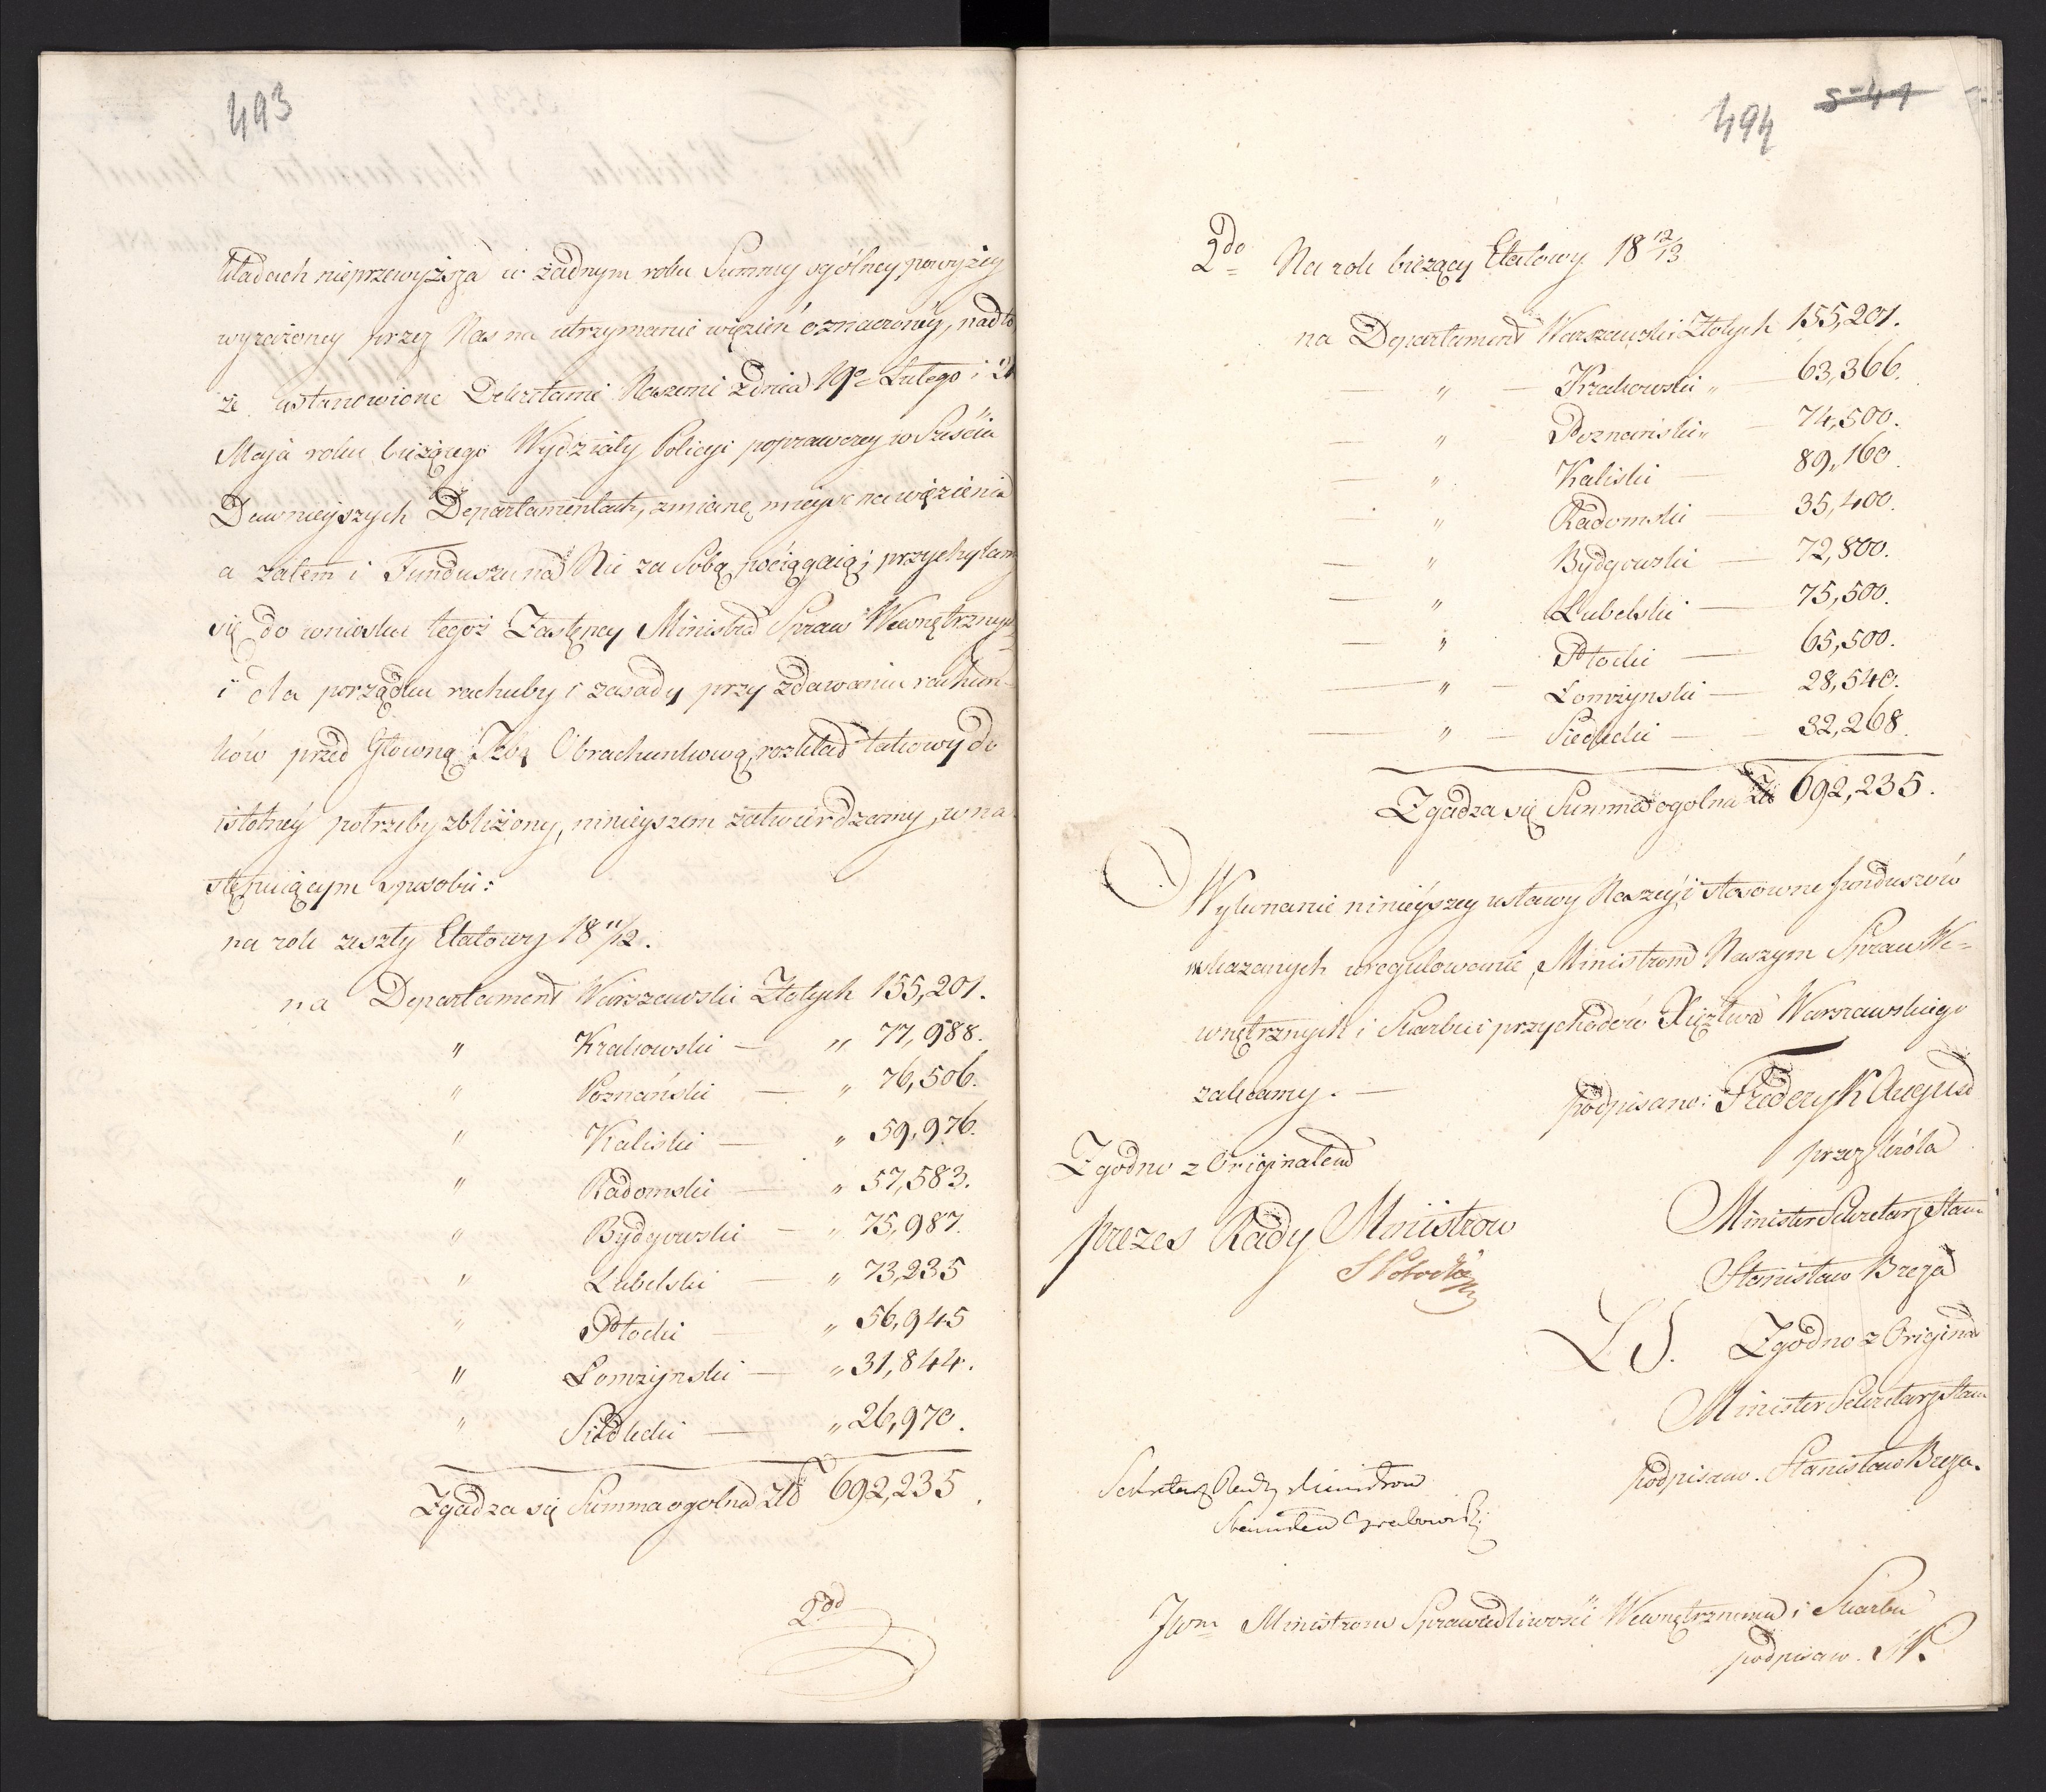 493
kładach nieprzewyższa w żadnym roku Summy ogólney, powyżey
wyrażoney przez Nas na utrzymanie więzień oznaczonéy, nadto
że ustanowione Dekretami Naszemi z dnia 19º Lutego i 21
Maja roku bieżącego Wydziały Policyi poprawczey w Sześciu
Dawnieyszych Departamentach, zmianę mieysc na więzienia
a zatem i Funduszu na Nie za Sobą pociągaią; przychylamy
się do wniosku tegoż Zastępcy Ministra Spraw Wewnętrznych
i dla porządku rachuby i zasady przy zdawaniu rachun-
ków przed Główną Izbą Obrachunkową, rozkład takowy do
istotnéy potrzeby zbliżony, ninieyszem zatwierdzamy, w na
stępuiącym sposobie:
na rok zeszły Etatowy 18 11/12.
na Departament Warszawski Złotych 155,201.
" Krakowski — " 77,988.
" Poznański — " 76,506.
" Kaliski — " 59,976.
" Radomski — " 57,583.
" Bydgowski — " 75,987.
" Lubelski — " 73,235
" Płocki — " 56,945
" Łomżyński — " 31,844.
" Siedlecki — " 26,970.
Zgadza się Summa ogolna Złł 692,235.
2do
494
5-41
2do Na rok bieżący Etatowy 18 12/13
na Departament Warszawski Złotych 155,201.
— " — Krakowski " — 63,366.
— " Poznański " — 74,500.
— " Kaliski — 89,160.
— " Radomski — 35,400.
— " Bydgowski — 72,800.
— " Lubelski — 75,500.
— " Płocki — 65,500.
— " — Łomżyński — 28,540.
— " — Siedlecki — 32,268.
Zgadza się Summa ogolna Złł 692,235.
Wykonanie ninieyszey ustawy Naszéy i stosowne funduszów
wskazanych uregulowanie, Ministrom Naszym Spraw We-
wnętrznych i Skarbu i przychodów Xięztwa Warszawskiego
zalecamy. —
podpisano: Fryderyk August
przez Króla
Zgodno z Originałem
Minister Sekretarz Stanu
Prezes Rady Ministrow
Stanisław Breza
S Potocki
L S. Zgodno z Origina
Minister Sekretarz Stanu
podpisano. Stanisław Breza.
Sekretarz Rady Ministrow
Stanisław Grabowski
JWm Ministrom Sprawiedliwości Wewnętrznemu i Skarbu
podpisaw.